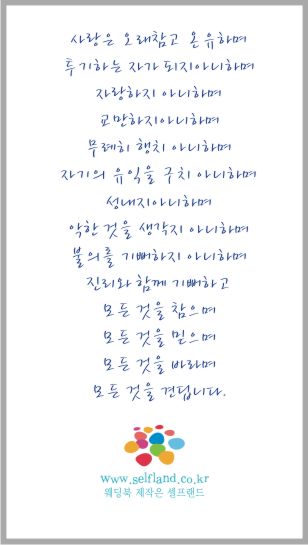 사랑은 오래참고 온유하며
투기하는 자가 되지아니하며
자랑하지 아니하며
교만하지아니하며
무례히 행치 아니하며
자기의 유익을 구치 아니하며
성내지아니하며
악한것을 생각지 아니하며
불의를 기뻐하지 아니하며
진리와 함께 기뻐하고
모든 것을 참으며
모든 것을 믿으며
모든 것을 바라며
모든 것을 견딥니다.
www.selfland.co.kr
웨딩북 제작은 셀프랜드